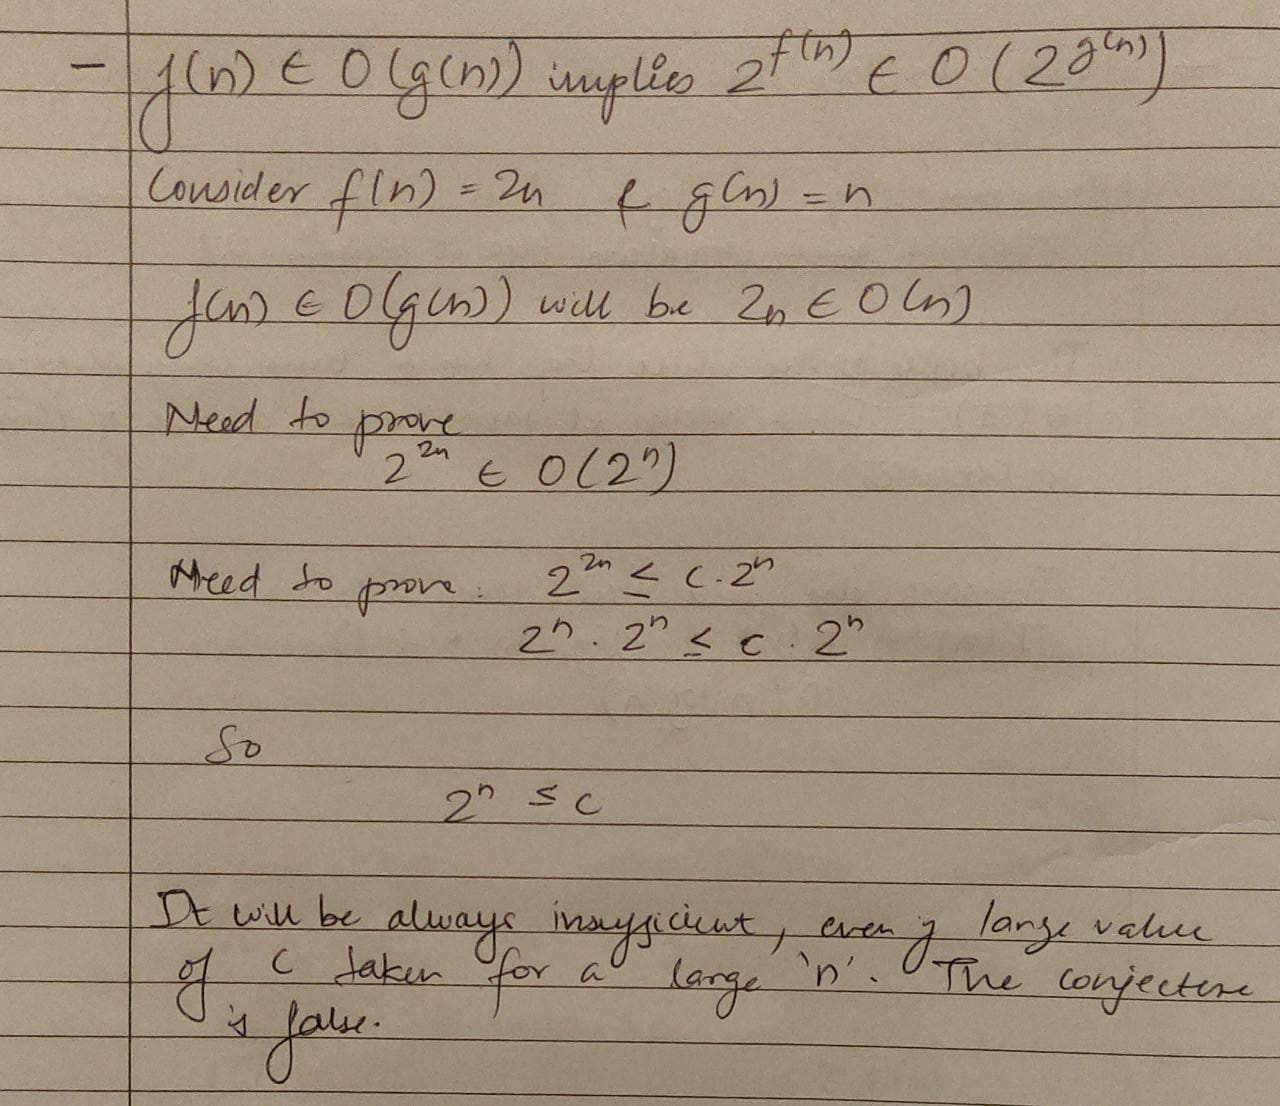 - f(n) ∈ O(g(n)) implies 2^f(n) ∈ O(2^g(n))
Consider f(n) = 2n & g(n) = n
f(n) ∈ O(g(n)) will be 2n ∈ O(n)
Need to prove
2^2n ∈ O(2^n)
Need to prove: 2^2n ≤ c.2^n
2^n . 2^n ≤ c . 2^n
So
2^n ≤ c
It will be always insufficient, even if large value
of c taken for a large 'n'. The conjecture
is false.